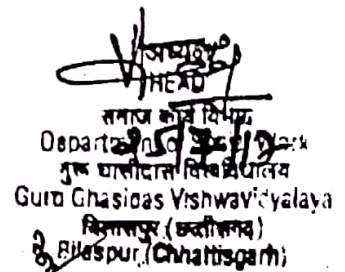 अध्यक्ष
HEAD
समाज कार्य विभाग
Department of Social Work
गुरू घासीदास विश्वविद्यालय
Guru Ghasidas Vishwavidyalaya
बिलासपुर (छत्तीसगढ़)
Bilaspur (Chhattisgarh)